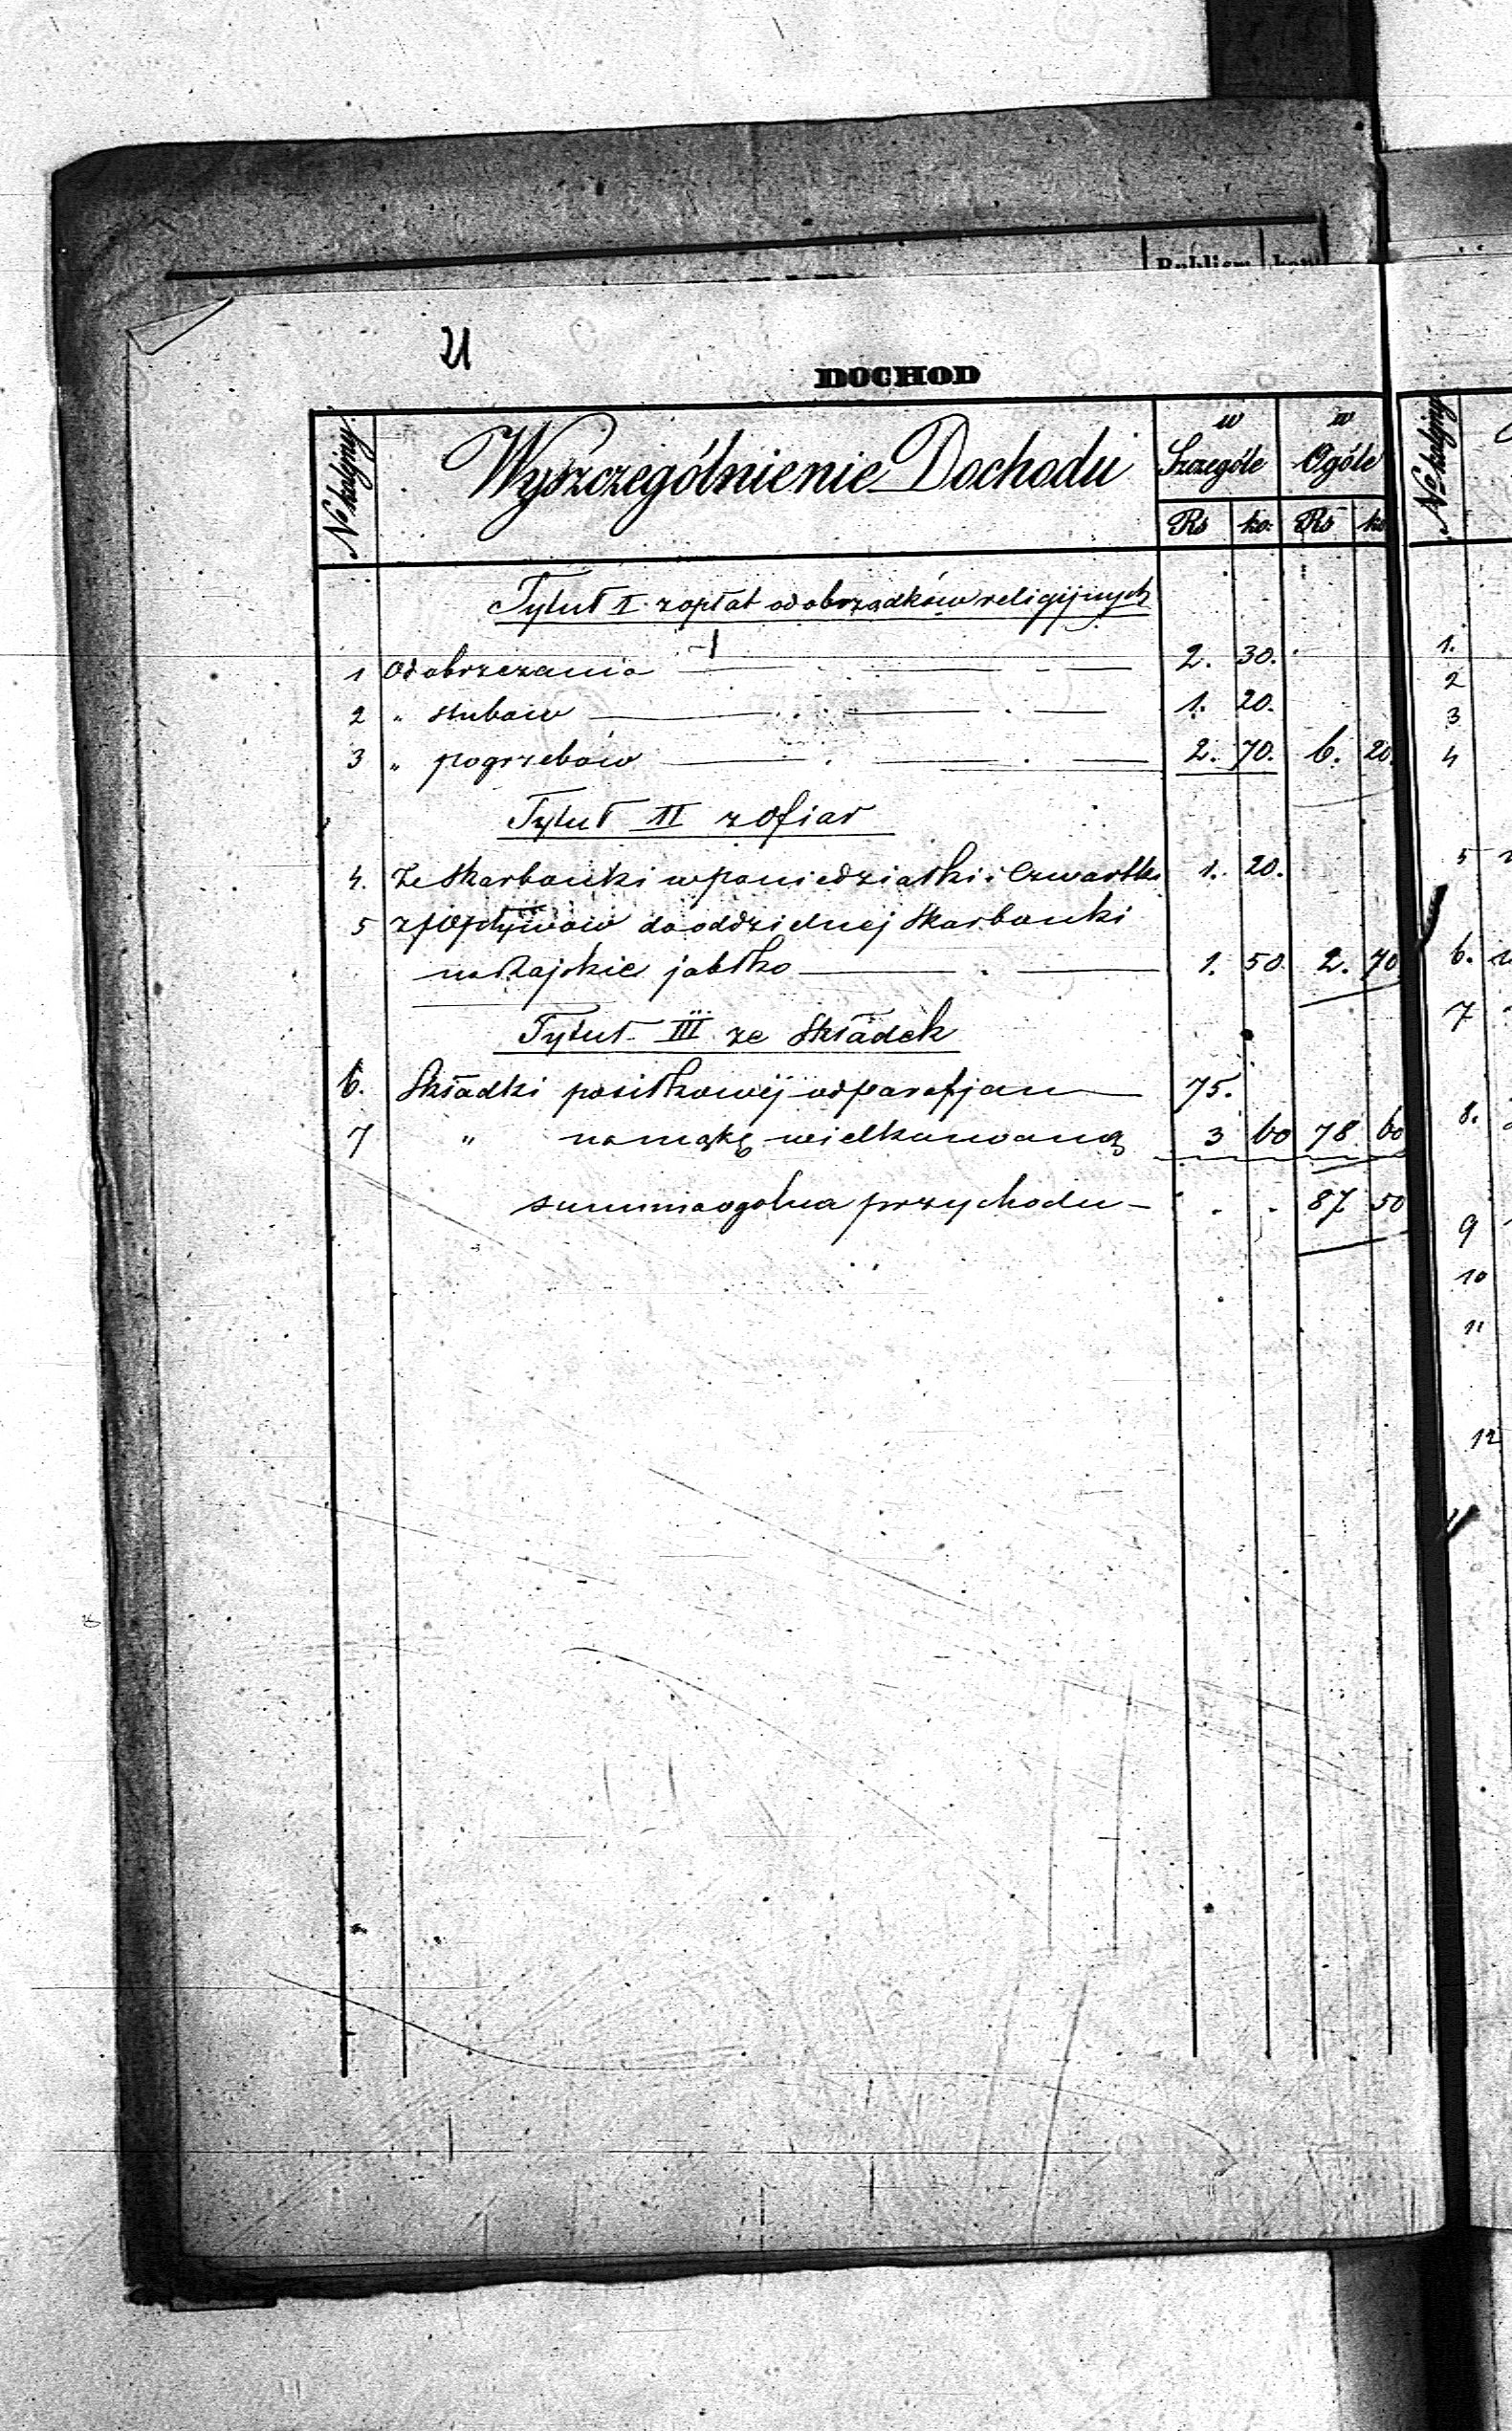 21
DOCHOD
№ kolejny. Wyszczególnienie Dochodu w Szczególe w Ogóle № kolejny
Rs ko. Rs ko
Tytuł I. z opłat od obrządków religijnych
1 Od obrzezania 2. 30. 1.
2 " ślubów 1. 20. 2
3 " pogrzebów 2. 70. 6. 20. 3
4
Tytuł II z Ofiar
4. Ze Skarbonki w poniedziałki i Czwartki 1. 20. 5
5 z wpływów do oddzielnej Skarbonki
na Rajskie jabłko 1. 50. 2. 70 6.
Tytuł III ze Składek 7
6. Składki posiłkowej od parafjan 75.
7 " na mąkę wielkanocną 3 60 78 60 8.
summa ogolna przychodu 87 50 9
10
11
12